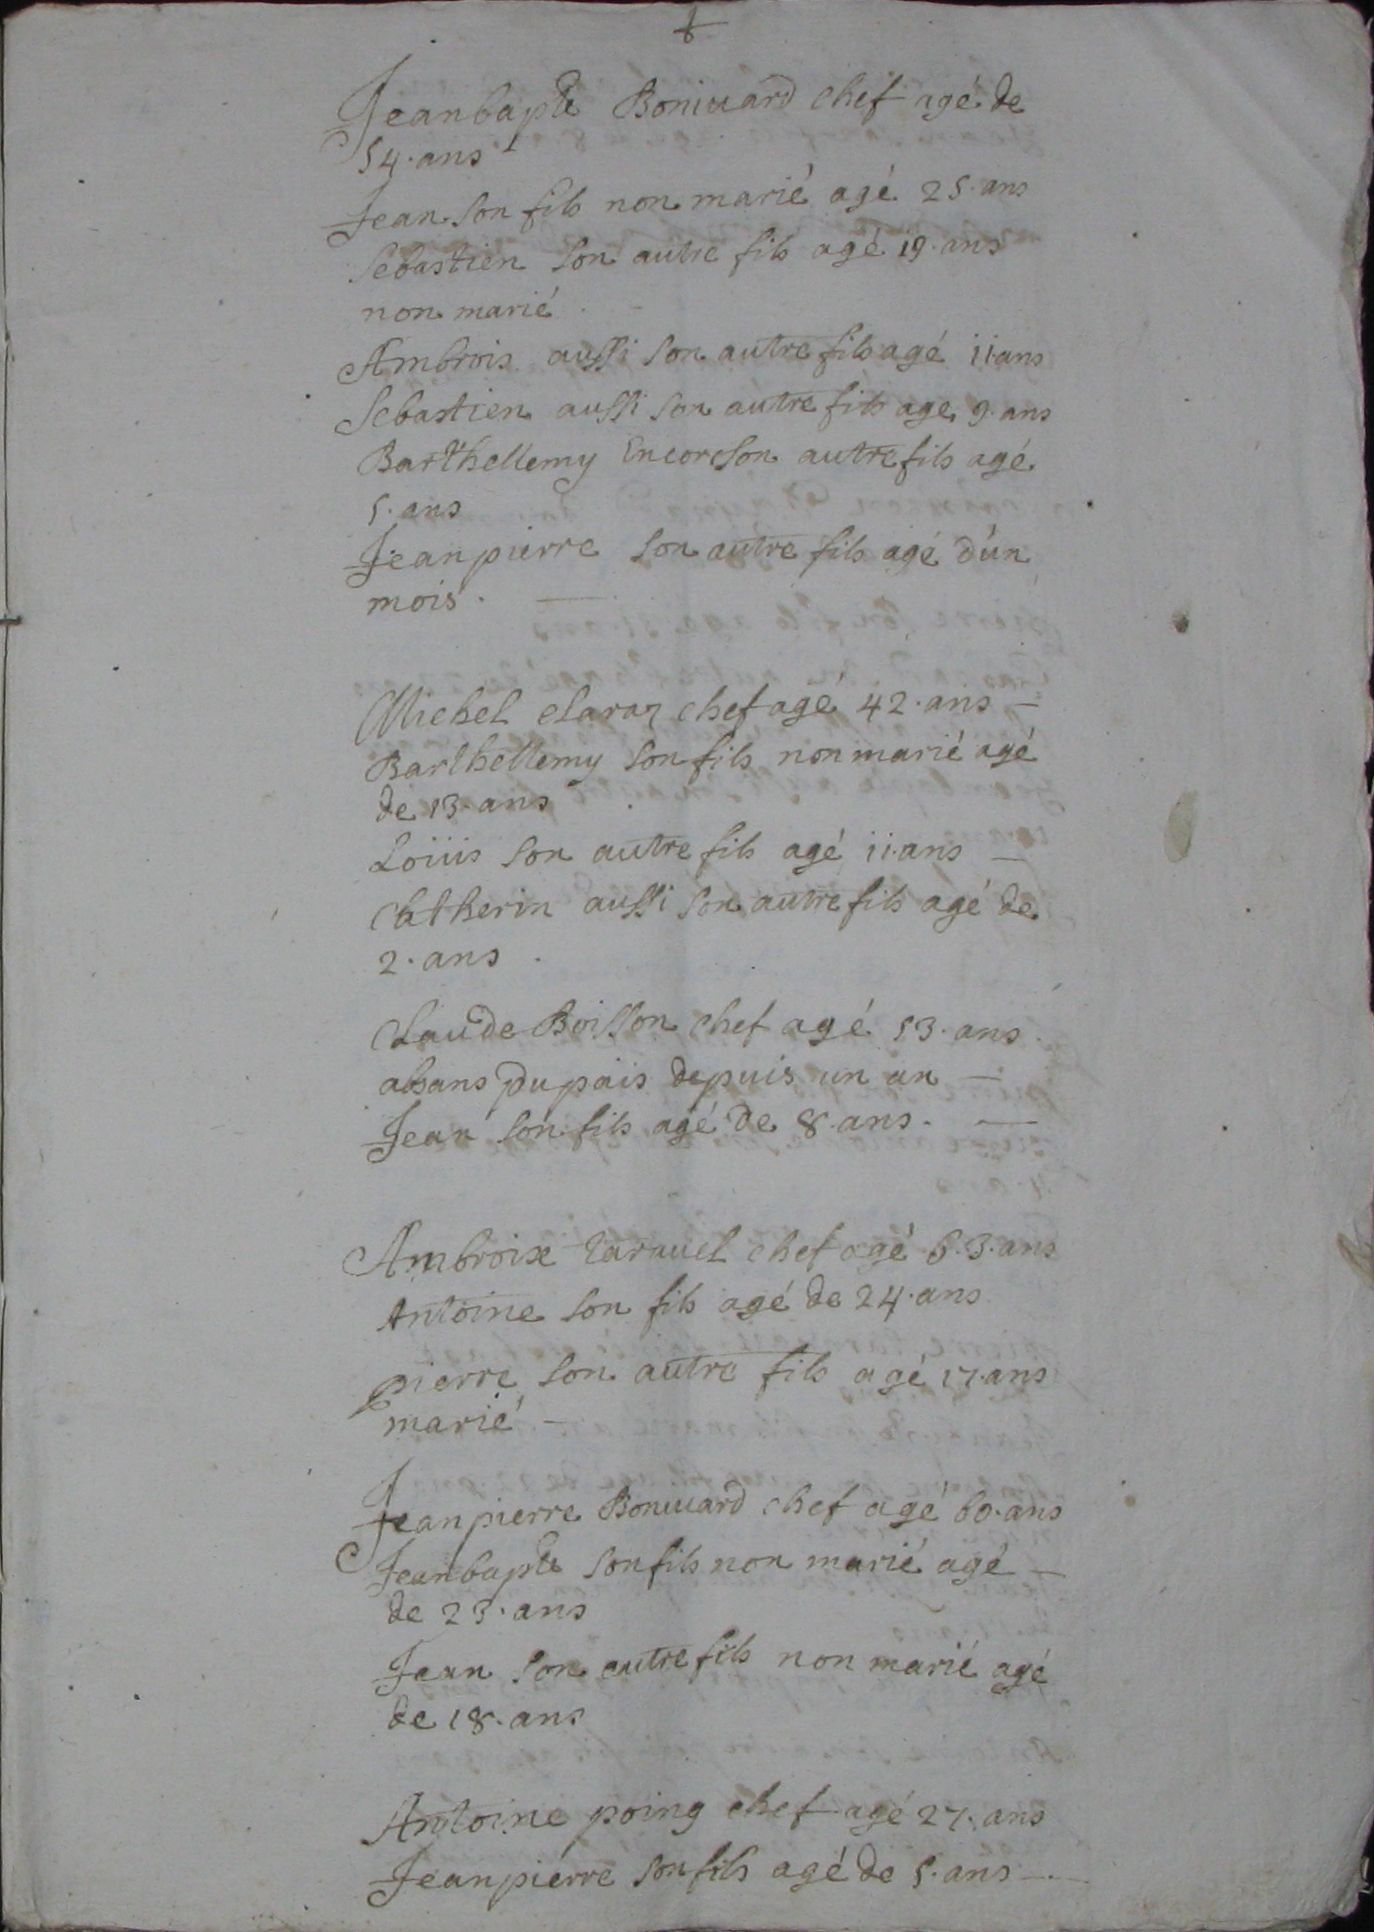 Jeanbapte Boniuard chef agé de
54. ans
Jean son fils non marié agé 25. ans
Sebastien son autre fils agé 19. ans
non marié
Ambrois aussi son autre fils agé 11. ans
Sebastien aussi son autre fils age 9. ans
Barthellemy Encor son autre fils agé
5. ans
Jeanpierre son autre fils agé d'un
mois.
Michel claraz chef agé 42. ans
Barthellemy son fils non marié agé
de 13. ans
Loüis son autre fils agé 11. ans
Catherin aussi son autre fils agé de
2. ans
Claude Boisson chef agé 53. ans
absans du païs depuis un an
Jean son fils agé de 8. ans.
Ambroise taruuel chef agé 63. ans
Antoine son fils agé de 24. ans
pierre son autre fils agé 17. ans
marié
Jeanpierre Boniuard chef agé 60. ans
Jeanbapte son fils non marié agé
de 23. ans
Jean son autre fils non marié agé
de 18. ans
Antoine poing chef agé 27. ans
Jeanpierre son fils agé de 5. ans